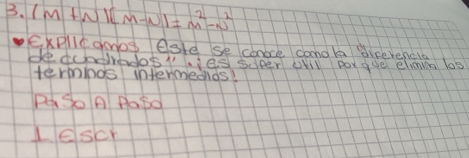 3. (M + N)(M - N) = m² - n²
• Explicamos este se conoce como la diferencia
de cuadrados". ¡es super útil por que elimina los
terminos intermedios!
Paso A Paso
1 Escr